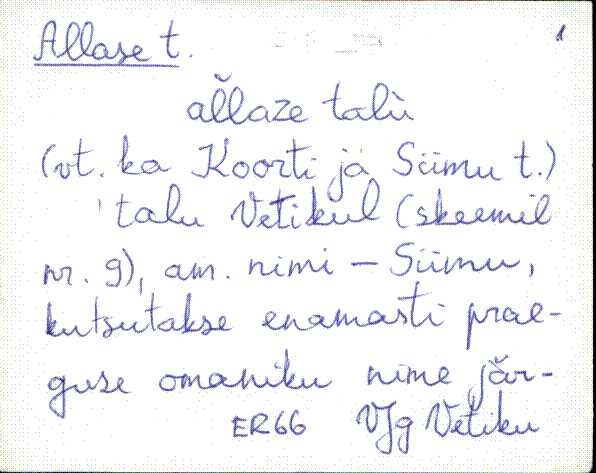 Allase t. 1
al̆l̆aze talù
(vt. ka Koorti ja Siimu t.)
talu Vetikul (skeemil
nr. 9), am. nimi – Siimu,
kutsutakse enamasti prae-
guse omaniku nime jär-
ER66 VJg Vetiku